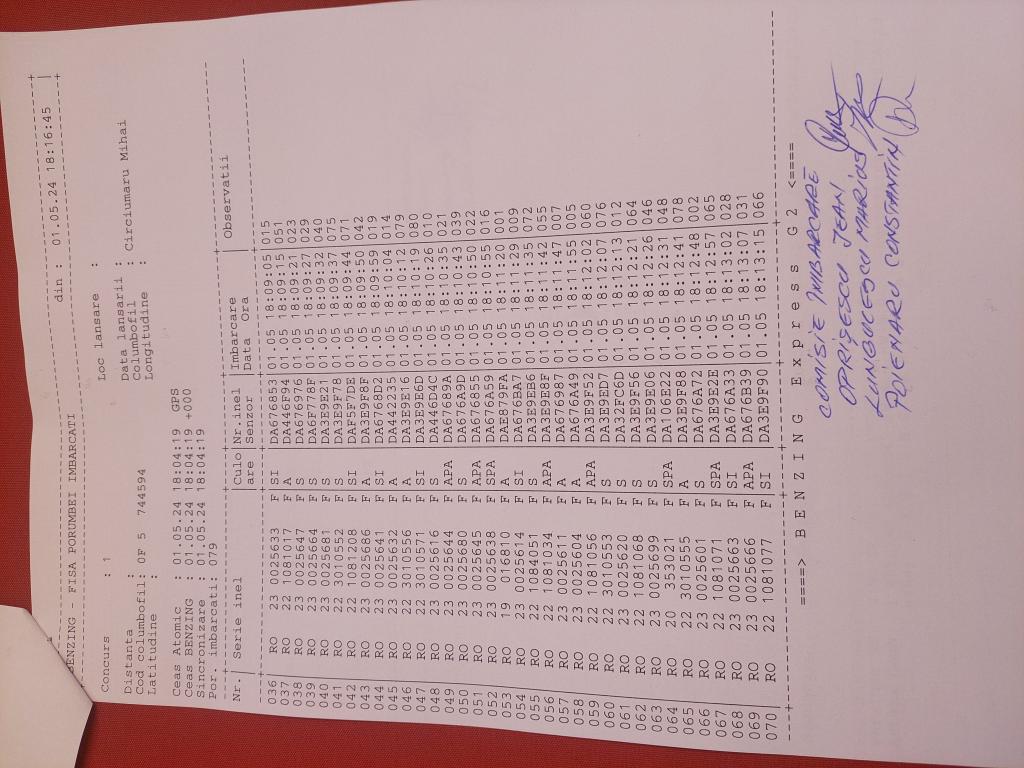 BENZING - FISA PORUMBEI IMBARCATI din : 01.05.24 18:16:45
Concurs : 1 Loc lansare :
Distanta : Data lansarii :
Cod columbofil: 0F 5 744594 Columbofil : Circiumaru Mihai
Latitudine : Longitudine :
Ceas Atomic : 01.05.24 18:04:19 GPS
Ceas BENZING : 01.05.24 18:04:19 +000
Sincronizare : 01.05.24 18:04:19
Por. imbarcati: 079
Nr. | Serie inel |Culo|Nr.inel |Imbarcare |Observatii
|are |Senzor |Data Ora
036| RO 23 0025633 F|SI |DA676853|01.05 18:09:05|015
037| RO 22 1081017 F|A |DA446F94|01.05 18:09:15|051
038| RO 23 0025647 F|S |DA676976|01.05 18:09:21|023
039| RO 23 0025664 F|S |DA6F778F|01.05 18:09:27|029
040| RO 23 0025681 F|S |DA3E9E21|01.05 18:09:32|040
041| RO 22 3010552 F|S |DA3E9F78|01.05 18:09:37|075
042| RO 22 1081208 F|SI |DAF5F7DE|01.05 18:09:44|071
043| RO 23 0025686 F|A |DA3E9F8F|01.05 18:09:50|042
044| RO 23 0025641 F|SI |DA6769D2|01.05 18:09:59|019
045| RO 23 0025632 F|S |DA442235|01.05 18:10:04|014
046| RO 22 3010556 F|A |DA3E9E16|01.05 18:10:12|079
047| RO 22 3010571 F|SI |DA3E9E6D|01.05 18:10:19|080
048| RO 23 0025616 F|S |DA446D4C|01.05 18:10:26|010
049| RO 23 0025644 F|APA |DA67689A|01.05 18:10:35|021
050| RO 23 0025680 F|S |DA676A9D|01.05 18:10:43|039
051| RO 23 0025645 F|APA |DA676855|01.05 18:10:50|022
052| RO 23 0025638 F|SPA |DA676A59|01.05 18:10:55|016
053| RO 19 016810 F|A |DAE879FA|01.05 18:11:20|001
054| RO 23 0025614 F|SI |DA676BA7|01.05 18:11:29|009
055| RO 22 1084051 F|S |DA3E9EB6|01.05 18:11:35|072
056| RO 22 1081134 F|APA |DA3E9E8F|01.05 18:11:42|055
057| RO 23 0025611 F|A |DA676987|01.05 18:11:47|007
058| RO 23 0025604 F|A |DA676A49|01.05 18:11:55|005
059| RO 22 1081056 F|APA |DA3E9F52|01.05 18:12:02|060
060| RO 22 3010553 F|S |DA3E9ED7|01.05 18:12:07|076
061| RO 23 0025620 F|S |DA32FC6D|01.05 18:12:13|012
062| RO 22 1081068 F|S |DA3E9F56|01.05 18:12:21|064
063| RO 23 0025699 F|S |DA3E9E06|01.05 18:12:26|046
064| RO 20 353021 F|SPA |DA106E22|01.05 18:12:31|048
065| RO 22 3010555 F|A |DA3E9F88|01.05 18:12:41|078
066| RO 23 0025601 F|S |DA676A72|01.05 18:12:48|002
067| RO 22 1081071 F|SPA |DA3E9E2E|01.05 18:12:57|065
068| RO 23 0025663 F|SI |DA676A33|01.05 18:13:02|028
069| RO 23 0025666 F|APA |DA676B39|01.05 18:13:07|031
070| RO 22 1081077 F|SI |DA3E9F90|01.05 18:13:15|066
====> B E N Z I N G  E x p r e s s  G 2 <====
COMISIE IMBARCARE
OPRIȘESCU JEAN
LUNGULESCU MARIUS
POIENARU CONSTANTIN